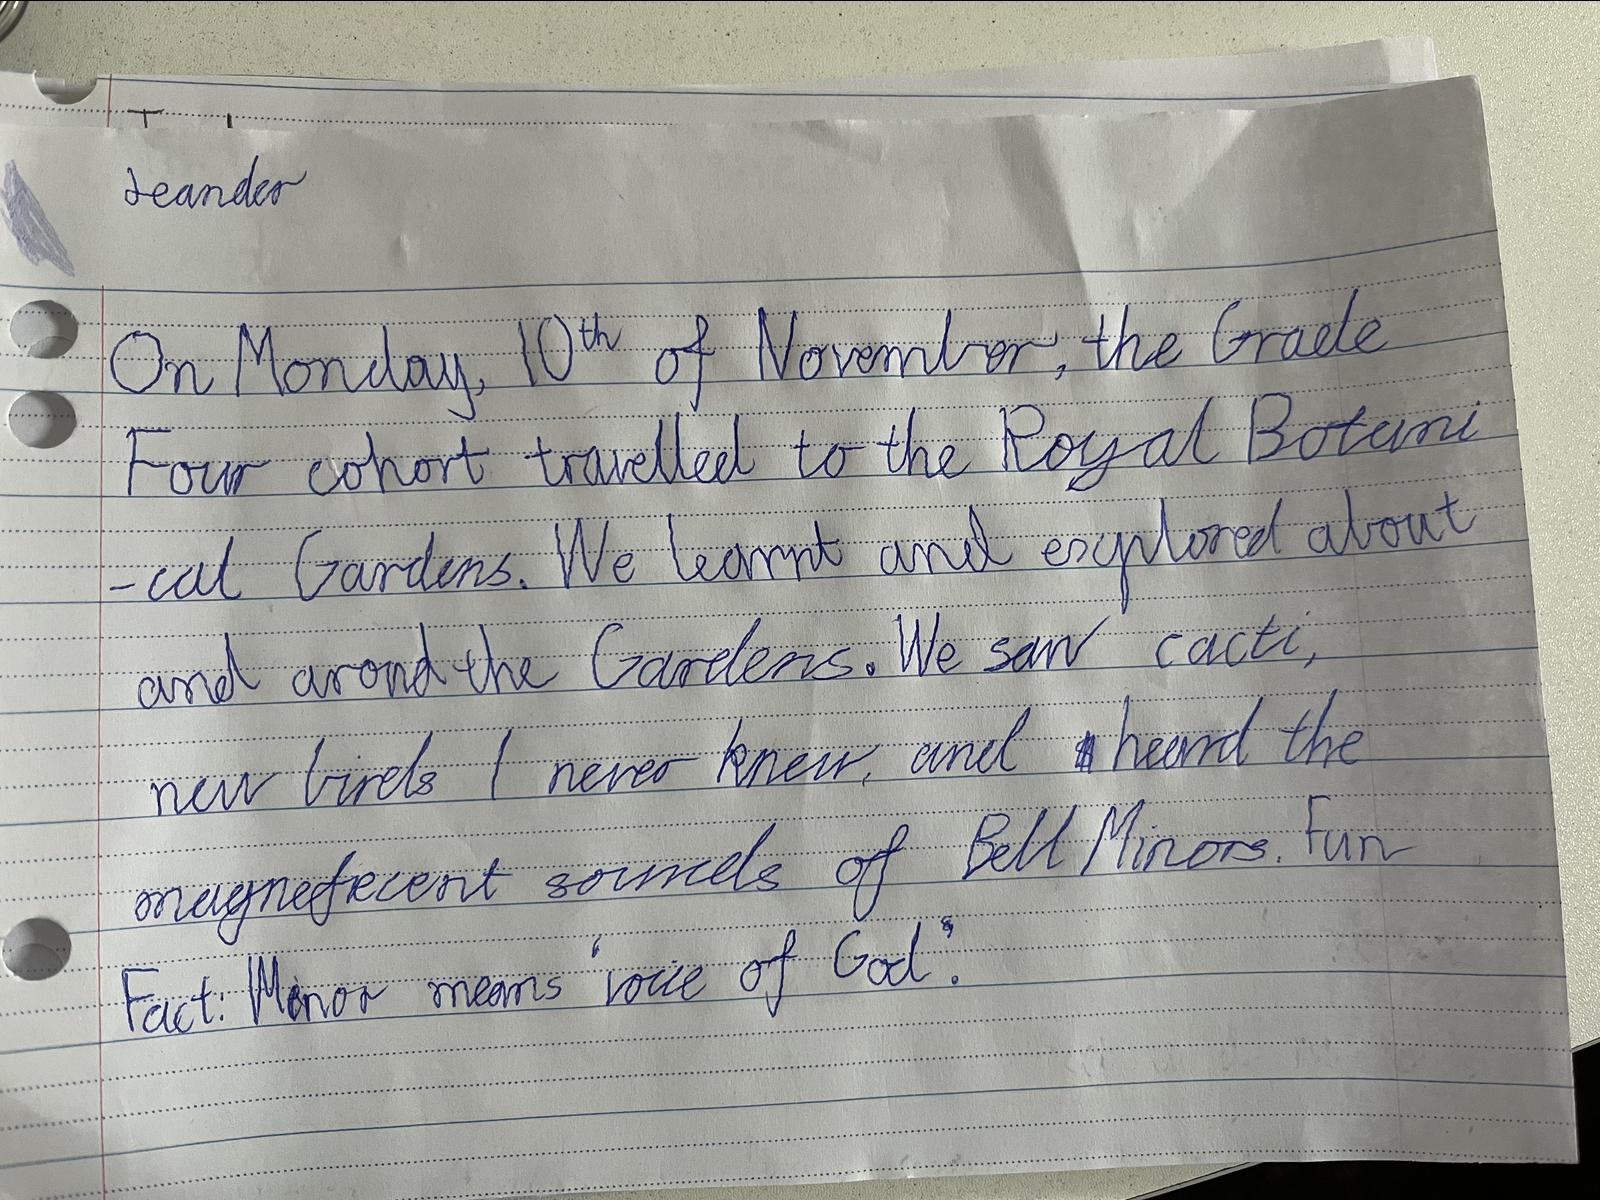 Leander
On Monday, 10th of November, the Grade
Four cohort travelled to the Royal Botani
-cal Gardens. We learnt and explored about
and arond the Gardens. We saw cacti,
new birds I never knew, and heard the
magneficent sounds of Bell Minors. Fun
Fact: Minor means 'voice of God'.